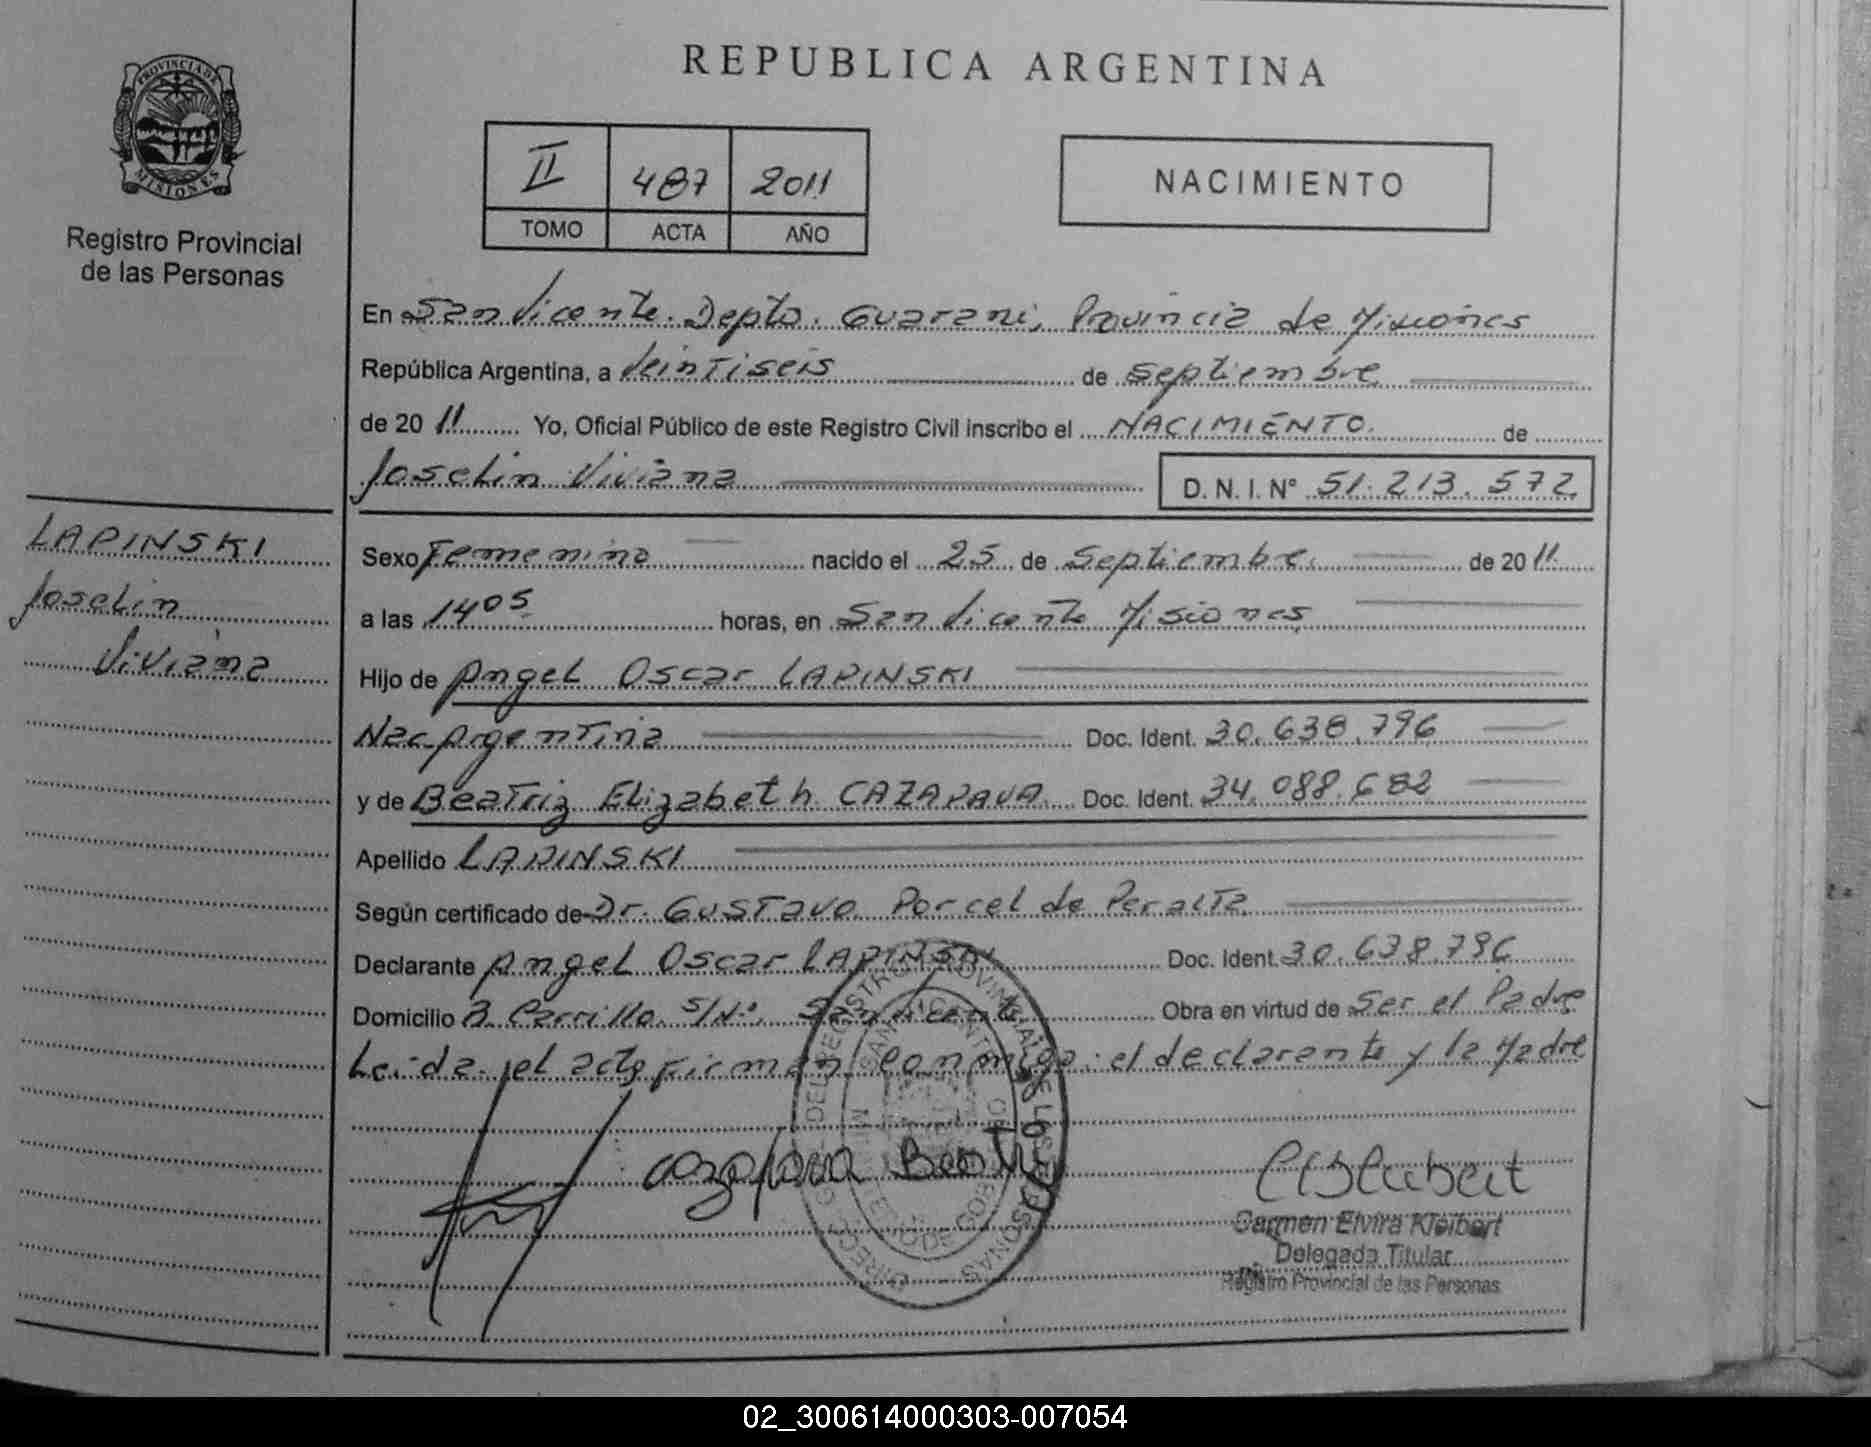 PROVINCIA DE
MISIONES
Registro Provincial
de las Personas
LAPINSKI
Joselin
Viviana
REPUBLICA ARGENTINA
II 487 2011
TOMO ACTA AÑO
NACIMIENTO
En San Vicente. Depto. Guarani, Provincia de Misiones
República Argentina, a Veintiseis de Septiembre
de 20 11 Yo, Oficial Público de este Registro Civil inscribo el NACIMIENTO. de
Joselin Viviana D. N. I. N° 51.213.572
Sexo Femenino nacido el 25 de Septiembre. de 20 11
a las 14 05 horas, en San Vicente Misiones
Hijo de Angel Oscar LAPINSKI
Nac Argentina Doc. Ident. 30.638.796
y de Beatriz Elizabeth CAZAPAVA Doc. Ident. 34.088.682
Apellido LAPINSKI
Según certificado de Dr. Gustavo Porcel de Peralta
Declarante Angel Oscar LAPINSKI Doc. Ident. 30.638.796
Domicilio B. Carrillo S/N°. San Vicente Obra en virtud de Ser el Padre
Leida el acta firman conmigo: el declarante y la Madre
Carmen Elvira Kleibert
Delegada Titular
Registro Provincial de las Personas
02_300614000303-007054